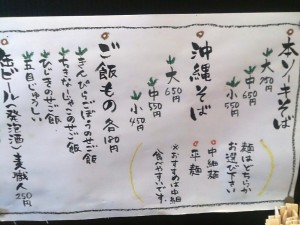 本ソーキそば
大 750円
中 650円
小 550円
麺はどちらか
お選び下さい
沖縄そば
大 650円
中 550円
小 450円
中細麺
平麺
※おすすめは中細
食べやすいです。
ご飯もの 各180円
きんぴらごぼうのせご飯
ちりめんじゃこのせご飯
ひじきのせご飯
五目じゅーしぃ
缶ビール(発泡酒)麦職人 250円